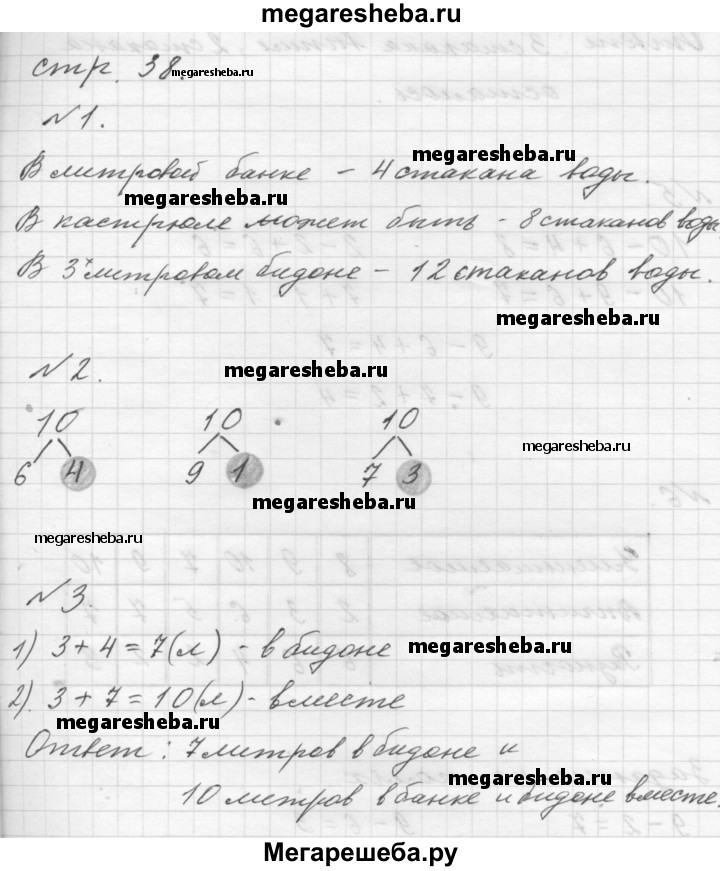 megaresheba.ru
стр. 38.
megaresheba.ru
№1.
megaresheba.ru
В литровой банке – 4 стакана воды.
megaresheba.ru
В кастрюле может быть – 8 стаканов воды
В 3х литровом бидоне – 12 стаканов воды.
megaresheba.ru
№2.
megaresheba.ru
10 10 10
megaresheba.ru
6 4 9 1 7 3
megaresheba.ru
megaresheba.ru
№3.
1) 3 + 4 = 7 (л) - в бидоне
megaresheba.ru
2). 3 + 7 = 10 (л) - вместе
megaresheba.ru
Ответ: 7 литров в бидоне и
megaresheba.ru
10 литров в банке и бидоне вместе.
Мегарешеба.ру